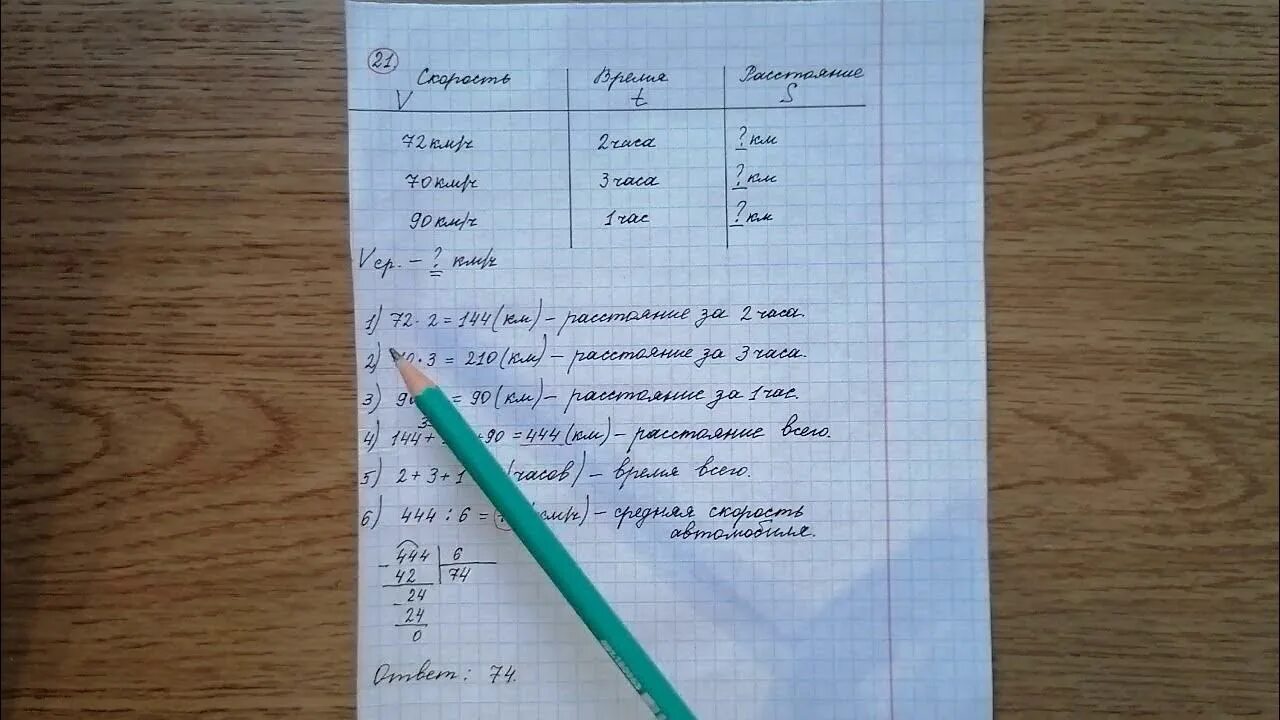 21
Скорость Время Расстояние
V t S
72км/ч 2часа ? км
70км/ч 3часа ? км
90км/ч 1час ? км
Vср. – ? км/ч
1) 72 · 2 = 144 (км) – расстояние за 2 часа.
2) · 3 = 210 (км) – расстояние за 3 часа.
3) = 90 (км) – расстояние за 1 час.
4) 144 + +90 = 444 (км) – расстояние всего.
5) 2 + 3 + 1 (часов) – время всего.
6) 444 : 6 = км/ч) – средняя скорость
автомобиля.
– 444 6
42 74
– 24
24
0
Ответ: 74.